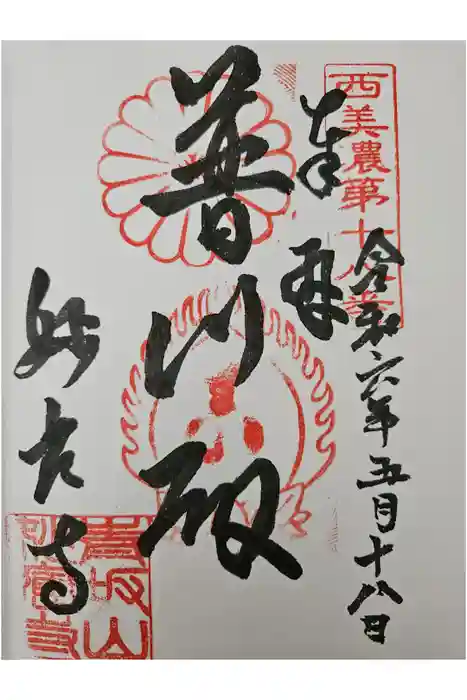 西美濃第十
奉拝
令和六年五月十八日
普門殿
妙応寺
青坂山
妙應寺